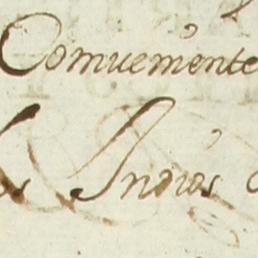 Comuemente
os Indios